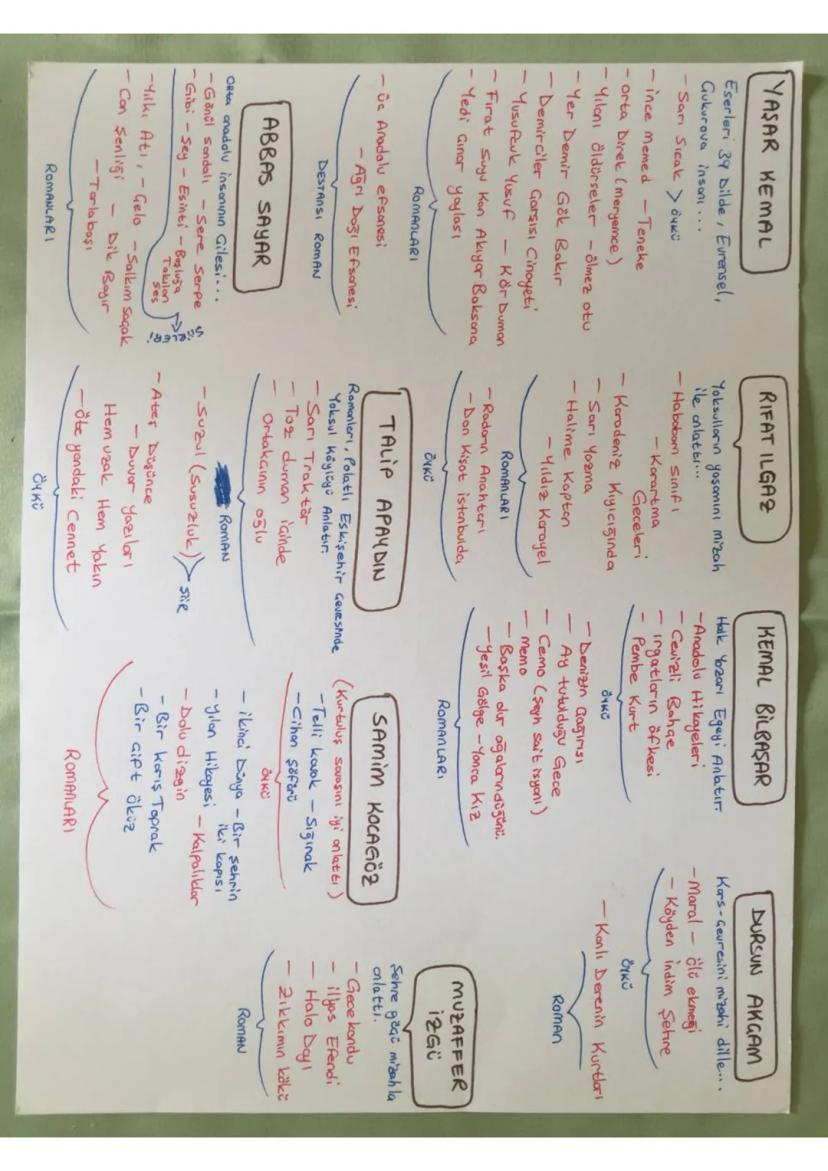 YAŞAR KEMAL
Eserleri 39 Dilde, Evrensel,
Çukurova insanı...
- Sarı Sıcak > öykü
- ince memed - Teneke
- orta Direk (meryemce)
- Yılanı öldürseler - ölmez otu
- Yer Demir Gök Bakır
- Demirciler Çarşısı Cinayeti
- Yusufcuk Yusuf - Kör Duman
- Fırat Suyu Kan Akıyor Baksana
- Yedi Çınar Yaylası
ROMANLARI
- Üç Anadolu efsanesi
- Ağrı Dağı Efsanesi
DESTANSI ROMAN
ABBAS SAYAR
Orta anadolu insanının Çilesi...
- Gönül Sandalı - Sere Serpe
- Gibi - Şey - Esinti - Boşluğa
Takılan
Ses
ŞİİRLERİ
- Yılkı Atı, - Çelo - Salkım Saçak
- Can Şenliği - Dik Bayır
- Tarlabaşı
ROMANLARI
RIFAT ILGAZ
Yoksulların yaşamını mizah
ile anlattı...
- Hababam Sınıfı
- Karartma
Geceleri
- Karadeniz Kıyıcığında
- Sarı Yazma
- Halime Kaptan
- Yıldız Karayel
ROMANLARI
- Radarın Anahtarı
- Don Kişot istanbulda
ÖYKÜ
TALİP APAYDIN
Romanları, Polatlı Eskişehir Çevresinde
Yoksul Köylüyü Anlatır.
- Sarı Traktör
- Toz duman içinde
- Ortakçının oğlu
ROMAN
- Susuzl (Susuzluk) > ŞİİR
- Ateş Düşünce
- Duvar Yazıları
Hem uzak Hem Yakın
- Öte yandaki Cennet
ÖYKÜ
KEMAL BİLBAŞAR
Halk Yazarı Egeyi Anlatır.
- Anadolu Hikayeleri
- Cevizli Bahçe
- ırgatların öfkesi
- Pembe Kurt
ÖYKÜ
- Denizin Çağırışı
- Ay tutulduğu Gece
- Cemo (Şeyh Sait isyanı)
- memo
- Başka olur ağaların düğünü.
- Yeşil Gölge - Yonca Kız
ROMANLARI
SAMİM KOCAGÖZ
(Kurtuluş savaşını iyi anlattı)
- Telli kavak - Sığınak
- Cihan Şöförü
ÖYKÜ
- ikinci Dünya - Bir Şehrin
iki kapısı
- Yılan Hikayesi - Kalpaklılar
- Doludizgin
- Bir Karış Toprak
- Bir Çift Öküz
ROMANLARI
DURSUN AKÇAM
Kars-Çevresini mizahi dille...
- Maral - Ölü ekmeği
- Köyden İndim Şehre
ÖYKÜ
- Kanlı Derenin Kurtları
ROMAN
MUZAFFER
İZGÜ
Şehre göçü mizahla
anlattı.
- Gecekondu
- ilyas Efendi
- Halo Dayı
- Zıkkımın kökü
ROMAN